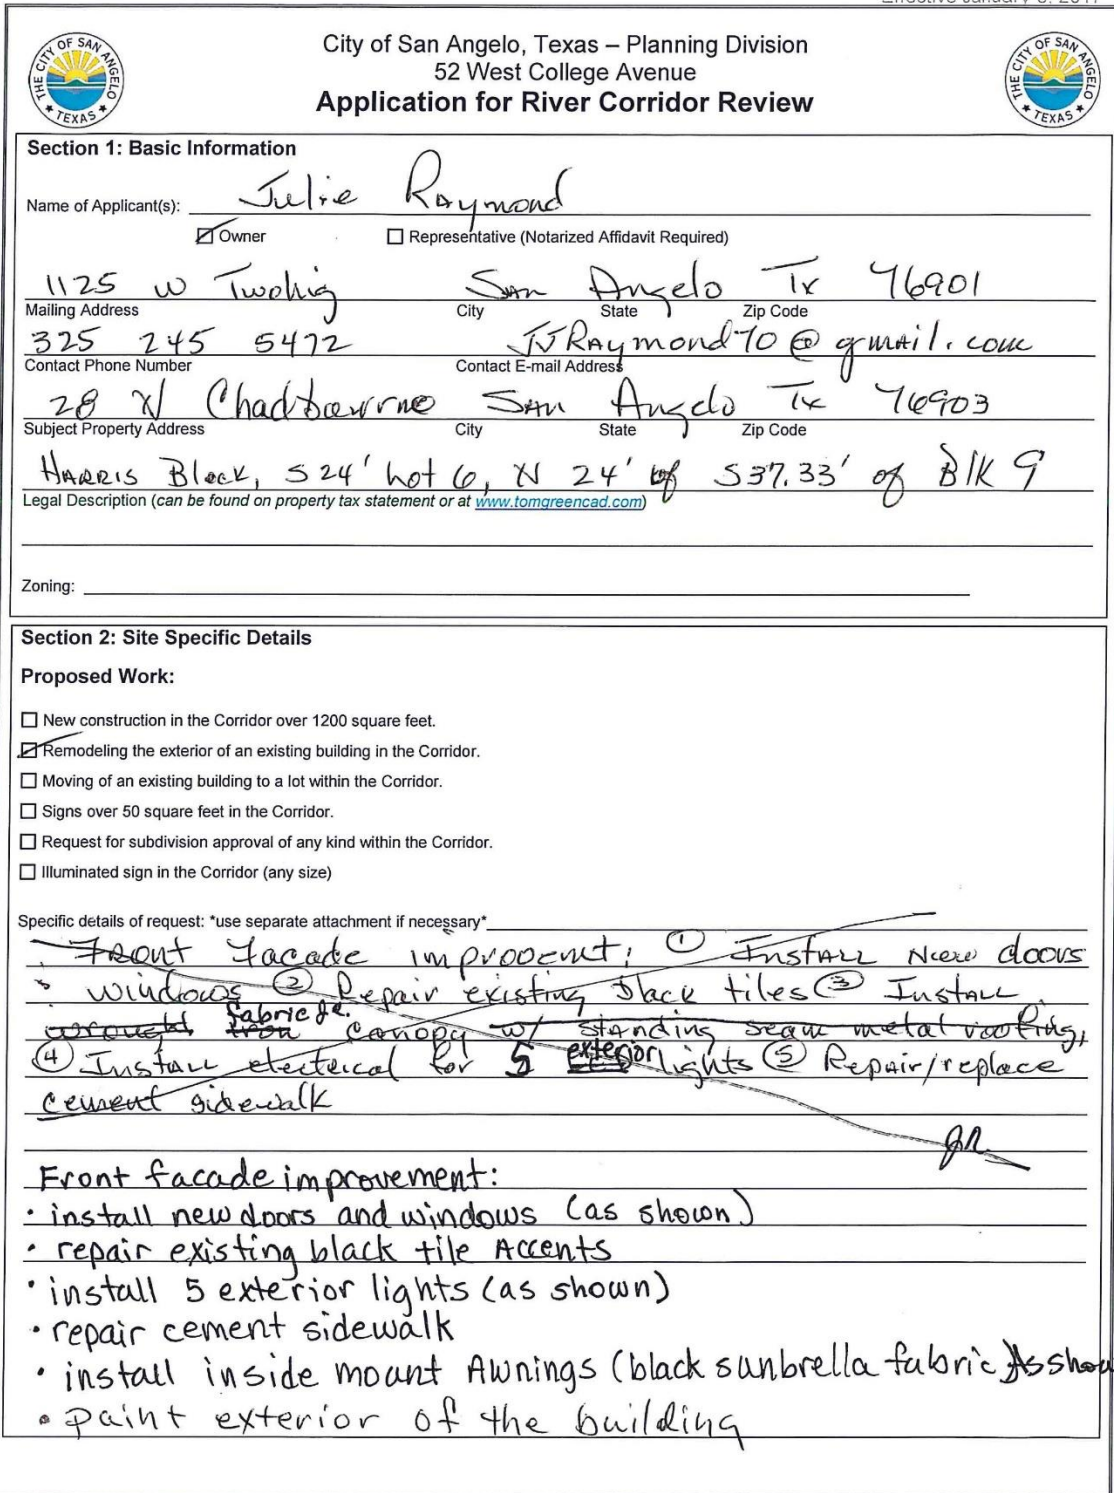 Effective January 3, 2017
City of San Angelo, Texas – Planning Division
52 West College Avenue
Application for River Corridor Review
THE CITY OF SAN ANGELO
TEXAS
THE CITY OF SAN ANGELO
TEXAS
Section 1: Basic Information
Name of Applicant(s): Julie Raymond
Owner Representative (Notarized Affidavit Required)
1125 W Twohig San Angelo Tx 76901
Mailing Address City State Zip Code
325 245 5472 JJRaymond70@gmail.com
Contact Phone Number Contact E-mail Address
28 N Chadbourne San Angelo Tx 76903
Subject Property Address City State Zip Code
HARRIS Block, S 24' Lot 6, N 24' of S37.33' of Blk 9
Legal Description (can be found on property tax statement or at www.tomgreencad.com)
Zoning:
Section 2: Site Specific Details
Proposed Work:
New construction in the Corridor over 1200 square feet.
Remodeling the exterior of an existing building in the Corridor.
Moving of an existing building to a lot within the Corridor.
Signs over 50 square feet in the Corridor.
Request for subdivision approval of any kind within the Corridor.
Illuminated sign in the Corridor (any size)
Specific details of request: *use separate attachment if necessary*
Front facade improvement: ① Install New doors
windows ② Repair existing black tiles ③ Install
wrought iron fabric canopy w/ standing seam metal roofing,
④ Install electrical for 5 exterior lights ⑤ Repair/replace
cement sidewalk
JR
Front facade improvement:
• install new doors and windows (as shown)
• repair existing black tile Accents
• install 5 exterior lights (as shown)
• repair cement sidewalk
• install inside mount Awnings (black sunbrella fabric As show
• paint exterior of the building